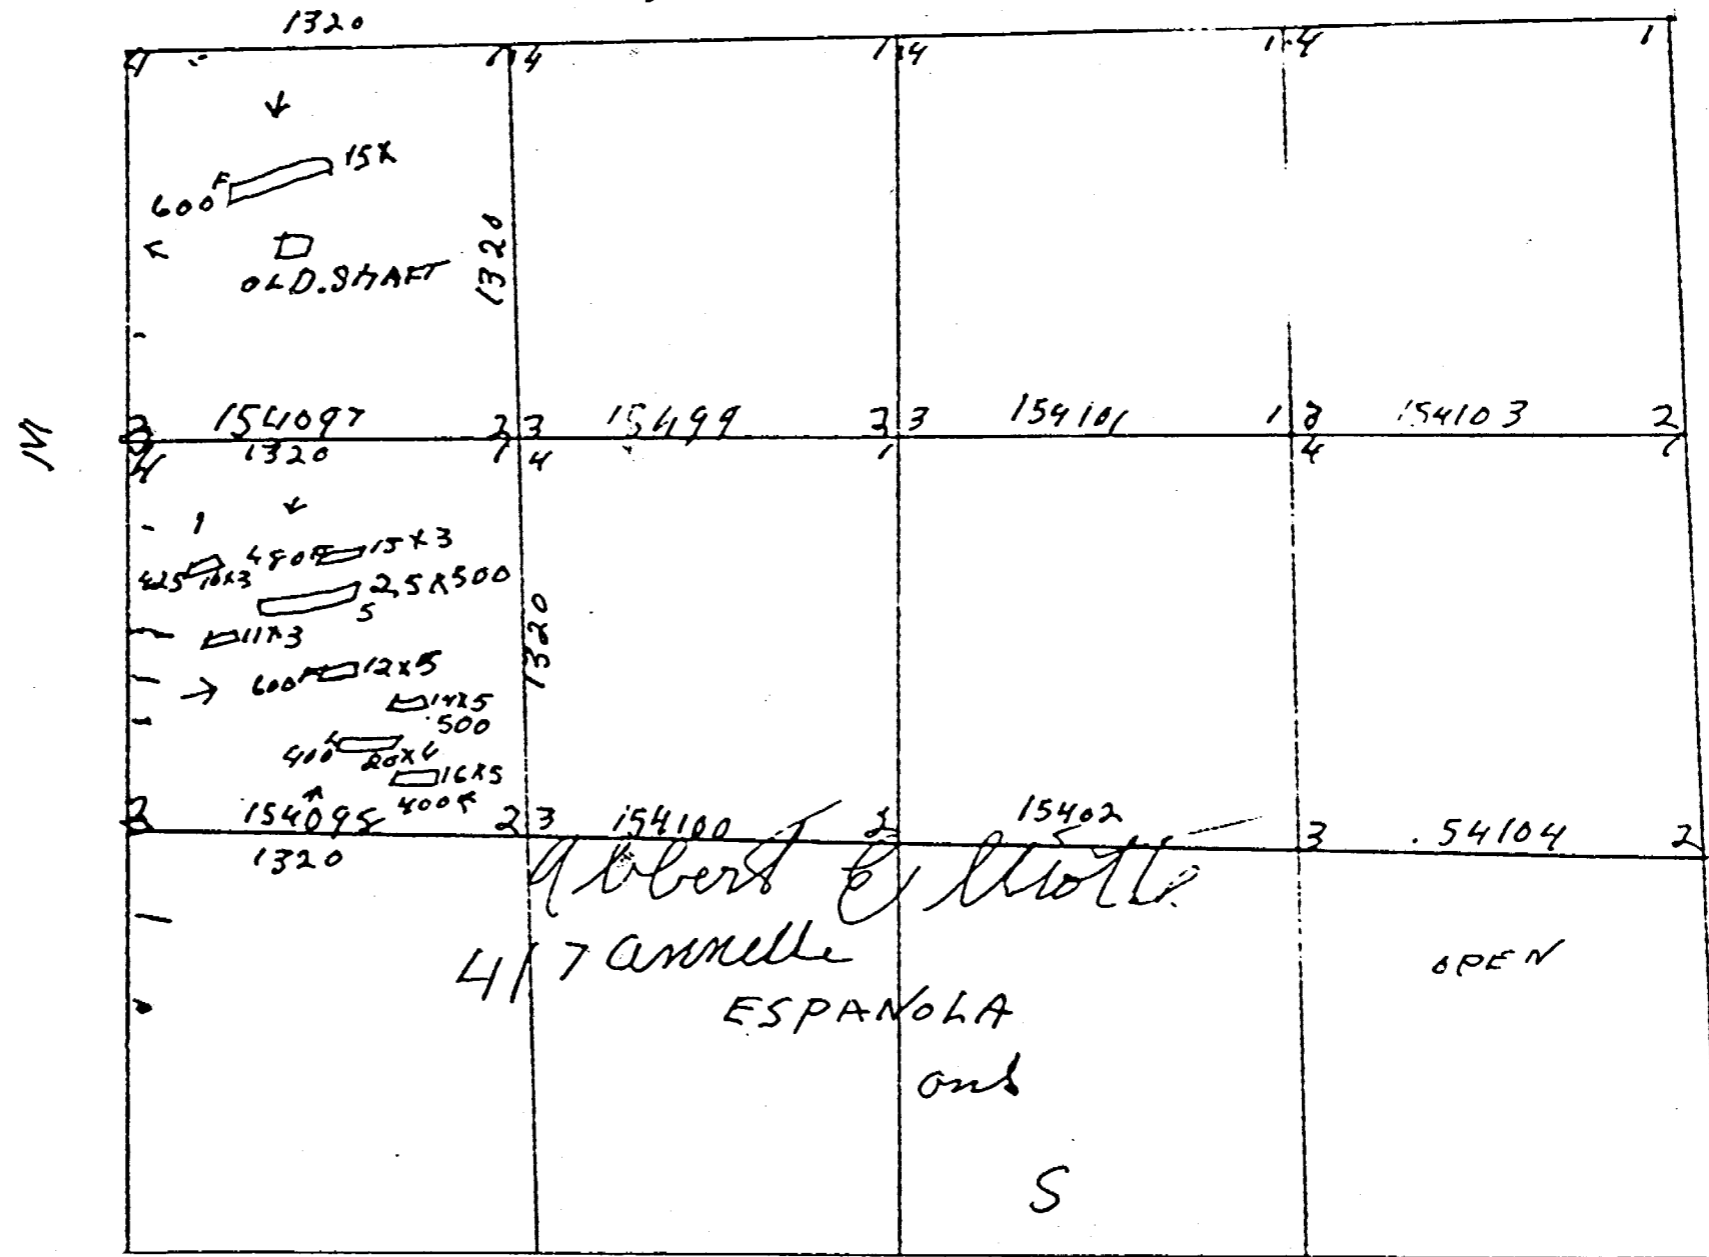 1320
4 1 4 1 4 1 4 1
15X
600F
OLD.SHAFT
1320
3 154097 2 3 15499 2 3 154101 1 3 154103 2
4 1320 1 4 1 4 1
480F 15X3
425 10X3
2,5X500
5
11X3
1320
600F 12X5
14X5
500
400F
20X4
16X5
400F
3 154098 2 3 154100 2 15402 3 .54104 2
1320
Albert Elliott
417 annelle
OPEN
ESPANOLA
ont
S